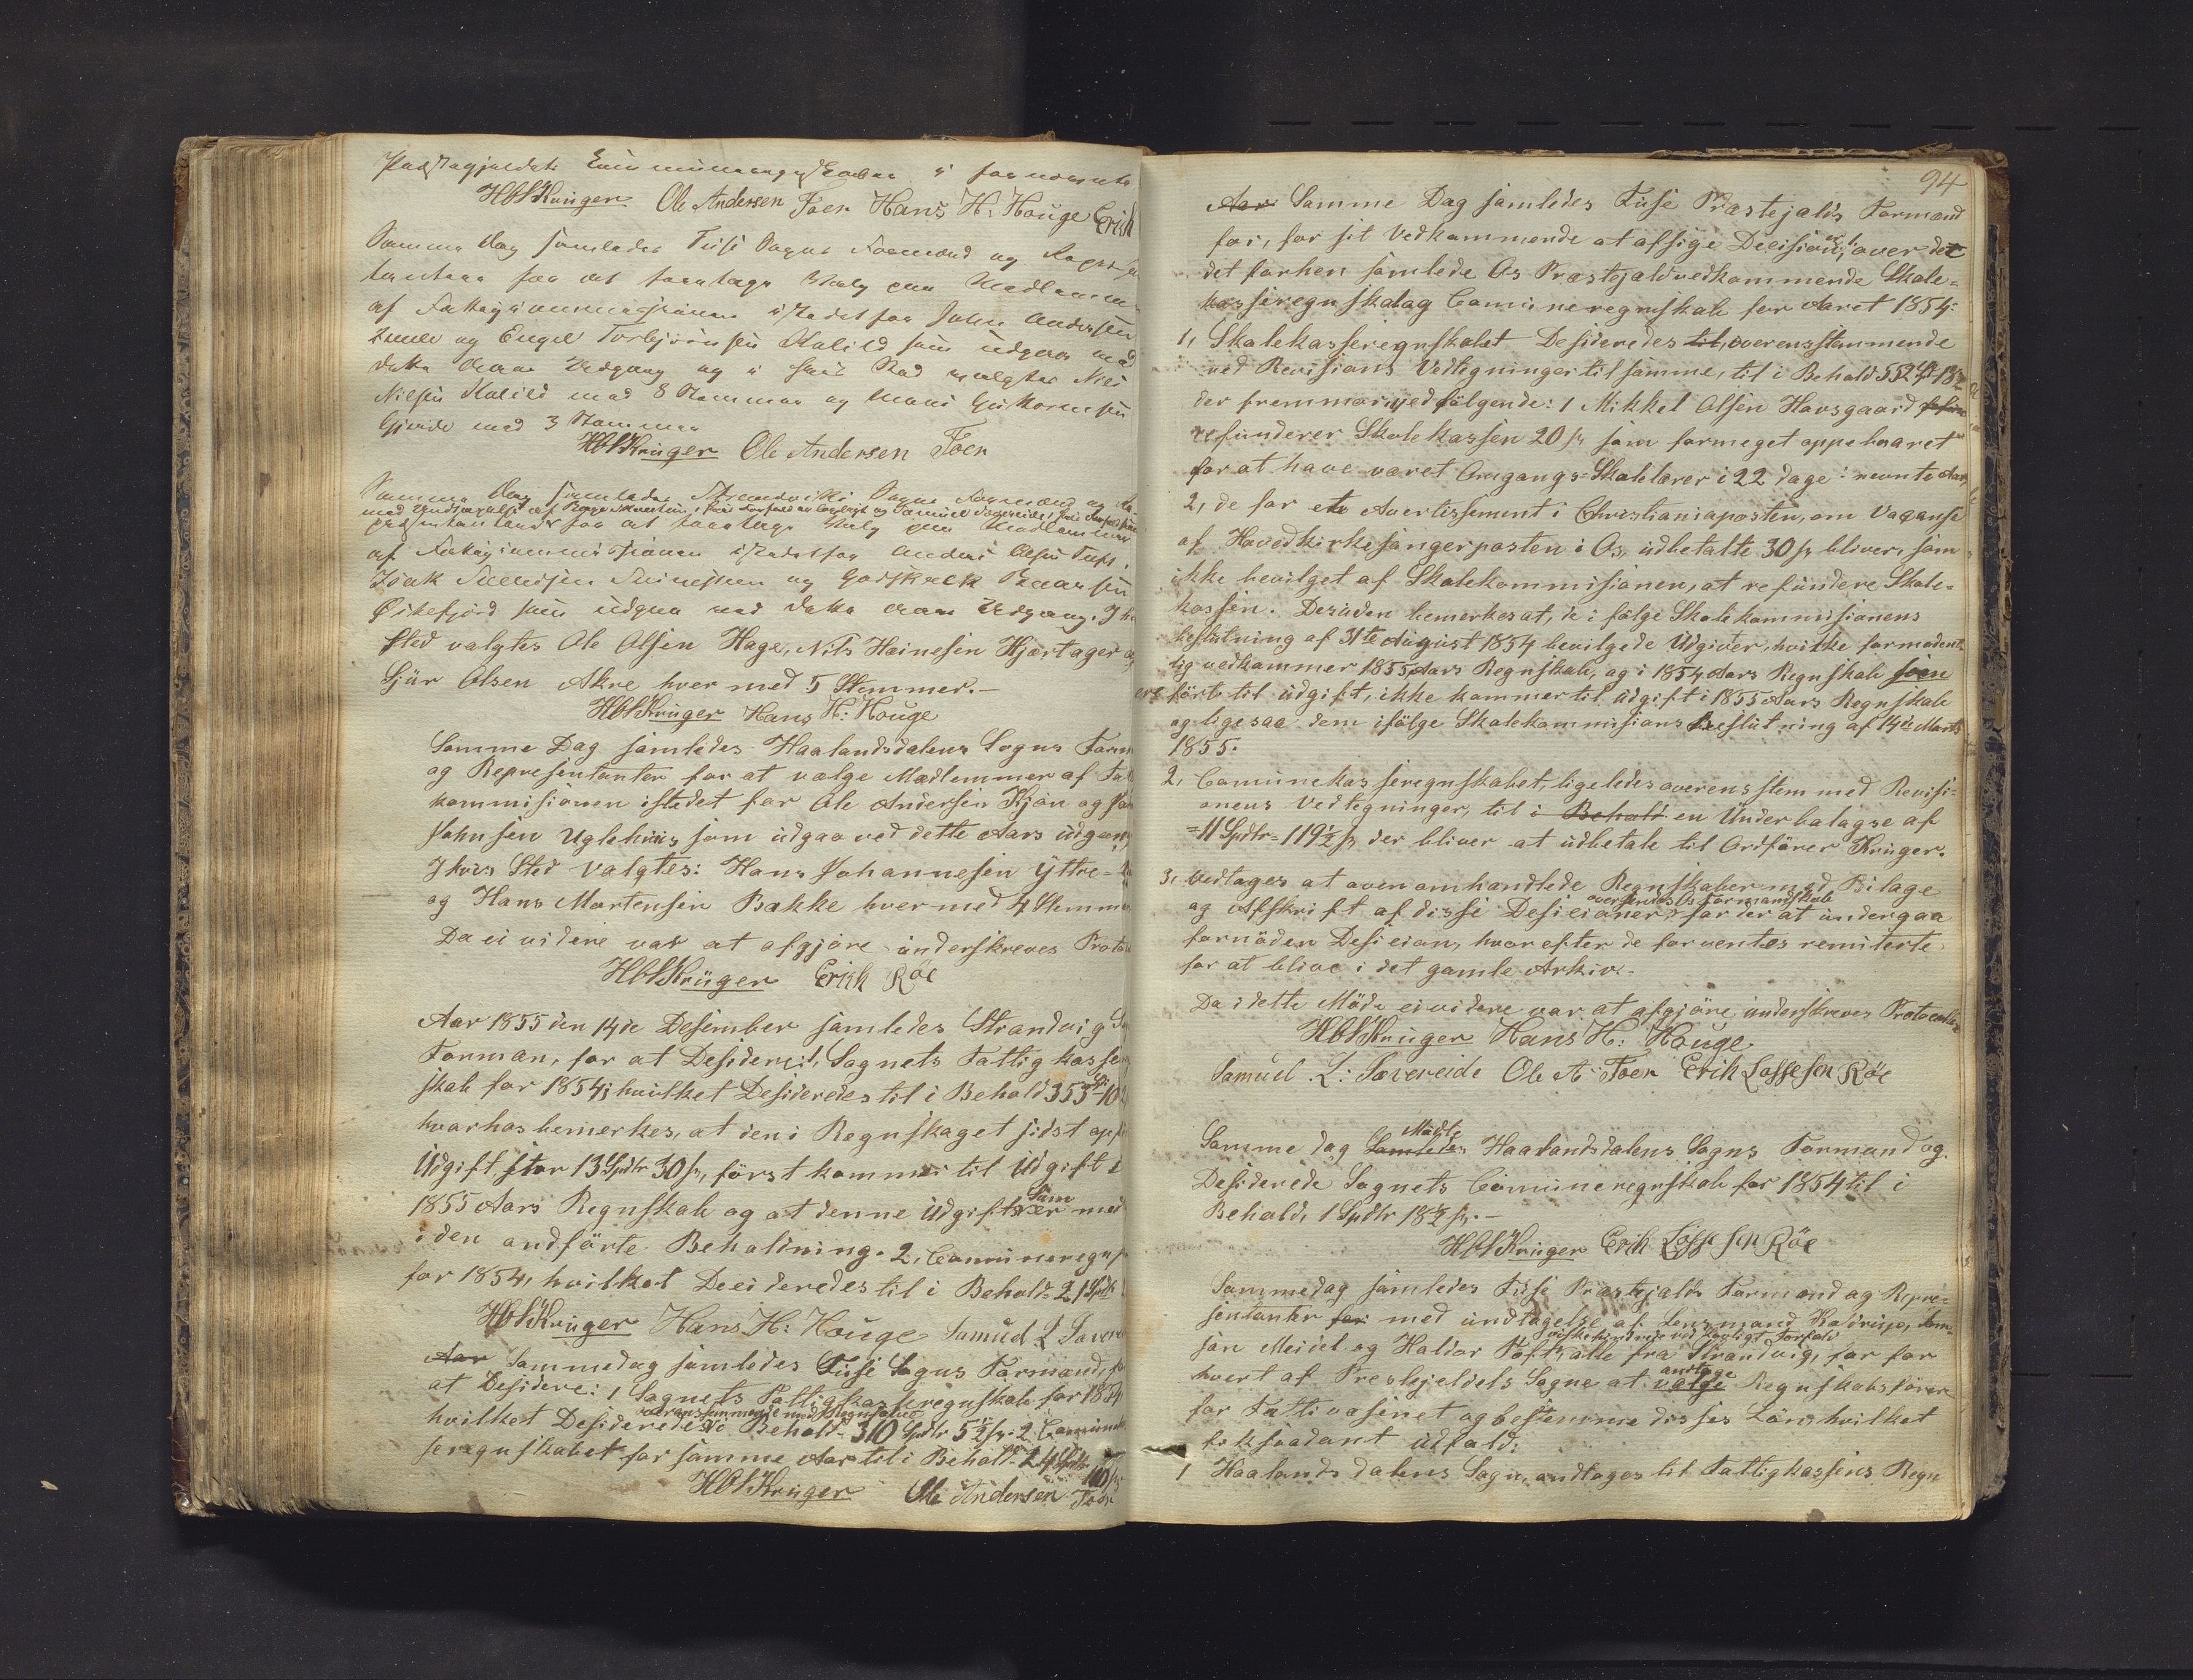 Præstegjældets Communeregnskaber i fornævnte
HCHKrüger Ole Andersen Foer Hans H: Houge Erich
Samme Dag samledes Fuse Sogns Formænd og Repræsen
tantere for at foretage Valg paa Medlemmer
af Fattigcommissionen istedet for John Andersen
og Engel Torbjörnsen Kalild som udgaar med
dette Aars Udgang og i Sted valgtes Niels
Nilsen Kalild med 8 Stemmer og
Gjerde med 3 Stemmer
HCHKrüger Ole Andersen Foer
Samme Dag samledes Strandviks Sogns Formænd og Re-
med Undtagelse af
præsentantere for at foretage Valg paa Medlemmer
af Fattigcommissionen istedetfor Anders Olsen Tufte,
Isak og Godskalk
Økefjord som udgaar med dette Aars Udgang. I
Sted valgtes Ole Olsen Hage, Nils Heinesen Hjørtager og
Sjur Olsen Akre hver med 5 Stemmer.-
HCHKrüger Hans H: Houge
Samme Dag samledes Haalandsdalens Sogns Form
og Representanter for at vælge Medlemmer af Fat
kommisionen istedet for Ole Andersen Kjøn og
Johnsen Uglehuus som udgaa ved dette Aars udgang
I hvis Sted valgtes: Hans Johannesen Yttre-
og Hans Mortensen Bakke hver med 4 Stemmer
Da ei videre var at afgjøre underskreves Proto
HCHKrüger Erich Röe
Aar 1855 den 14de Desember samledes Strandvig S
Forman, for at Desidere: 1, Sognets Fattigkasse
skab for 1854; hvilket Desideredes til i Behold 355 Sp 10
hvorhos bemerkes, at den i Regnskaget sidst opf
Udgift stor 13 Spdlr 30 s, först kommer til Udgift i
1855 Aars Regnskab og at denne Udgift Sum er med
i den andförte Beholdning. 2, Communeregns
for 1854, hvilket Deeideredes til i Behold= 21 Spdlr
HCHKrüger Hans H: Houge Samuel L Savere
Aar Sammedag samledes Fuse Sogns Formænd, f
at Desidere: 1 Sognets Fattigkasseregnskab for 1854
overensstemmende med Regnskabet
hvilket Desideredes i Behold= 310 Spdlr 5½ s. 2 Commune
seregnskabet for samme Aar til i Behold= 24 Spdlr
110 s
HCHKrüger Ole Andersen Foer
94
Aar Samme Dag samledes Fuse Præstejalds Formænd
for, for sit Vedkommende at afsige Deeision, over det
det forhen samlede Os Præstejald vedkommende Skole-
kasseregnskab og Comuneregnskab for Aaret 1854:
1, Skolekasseregnskabet Desideredes til, overensstemmende
med Revisions Vedtegninger til samme, til i Behold 552 Sp 18
der fremmer ved følgende: 1 Mikkel Olsen Havsgaard refun
refunderer Skolekassen 20 s, som formeget oppebaaret
for at have været Omgangs-Skolelærer i 22 dage i nevnte Aar,
2, de for et Avertissement i Christianiaposten, om Vaganse
af Hovedkirkesangerposten i Os, udbetalte 30 s bliver, som
ikke bevilget af Skolekommisionen, at refundere Skole-
kassen. Desuden bemerkes at, de i følge Skolekommisionens
beslutning af 31te August 1854 bevilgede Udgiver, hvilke formodent-
lig vedkommer 1855 Aars Regnskab, og i 1854 Aars Regnskab som
ere förte til udgift, ikke kommer til udgift i 1855 Aars Regnskab
og ligesaa dem ifølge Skolekommisions Beslutning af 14de Marts
1855.
2, Comunekasseregnskabet, ligeledes overensstem med Revisi-
onens Vedtegninger, til i Behold en Underbalagse af
=11 Spdlr= 119½ s, der bliver at udbetale til Ordförer Krüger.
3, Vedtages at ovenomhandlede Regnskaber med Bilage
oversendes Os Formandskab
og Afskrift af disse Desieioner, for der at undergaa
fornöden Desieion, hvorefter de forventes remiterte
for at blive i det gamle Arkiv.
Da i dette Möde ei videre var at afgjøre underskreves Protocollen
HCHKrüger Hans H: Houge
Samuel L: Sævereide Ole A Foer Erik Lassesen Röe
Mödte
Samme dag Samledes Haalandsdalens Sogns Formænd og
Desiderede Sognets Comuneregnskab for 1854 til i
Behold, 1 Spdlr 18½ s.-
HCHKrüger Erik Lassesen Röe
Sammedag samledes Fuse Præstejalds Formænd og Repre-
sentanter for med undtagelse af Lensmand
Meidel og Haldor Tofte, alle fra Strandvig, for for
hvert af Presejeldets Sogne at vælge antage Regnskabsförer
for Fattivæsenet og bestemme disses Lön, hvilket
fik saadant udfald:
1 Haalandsdalens Sogn, andtages til Fattigkassens Regn